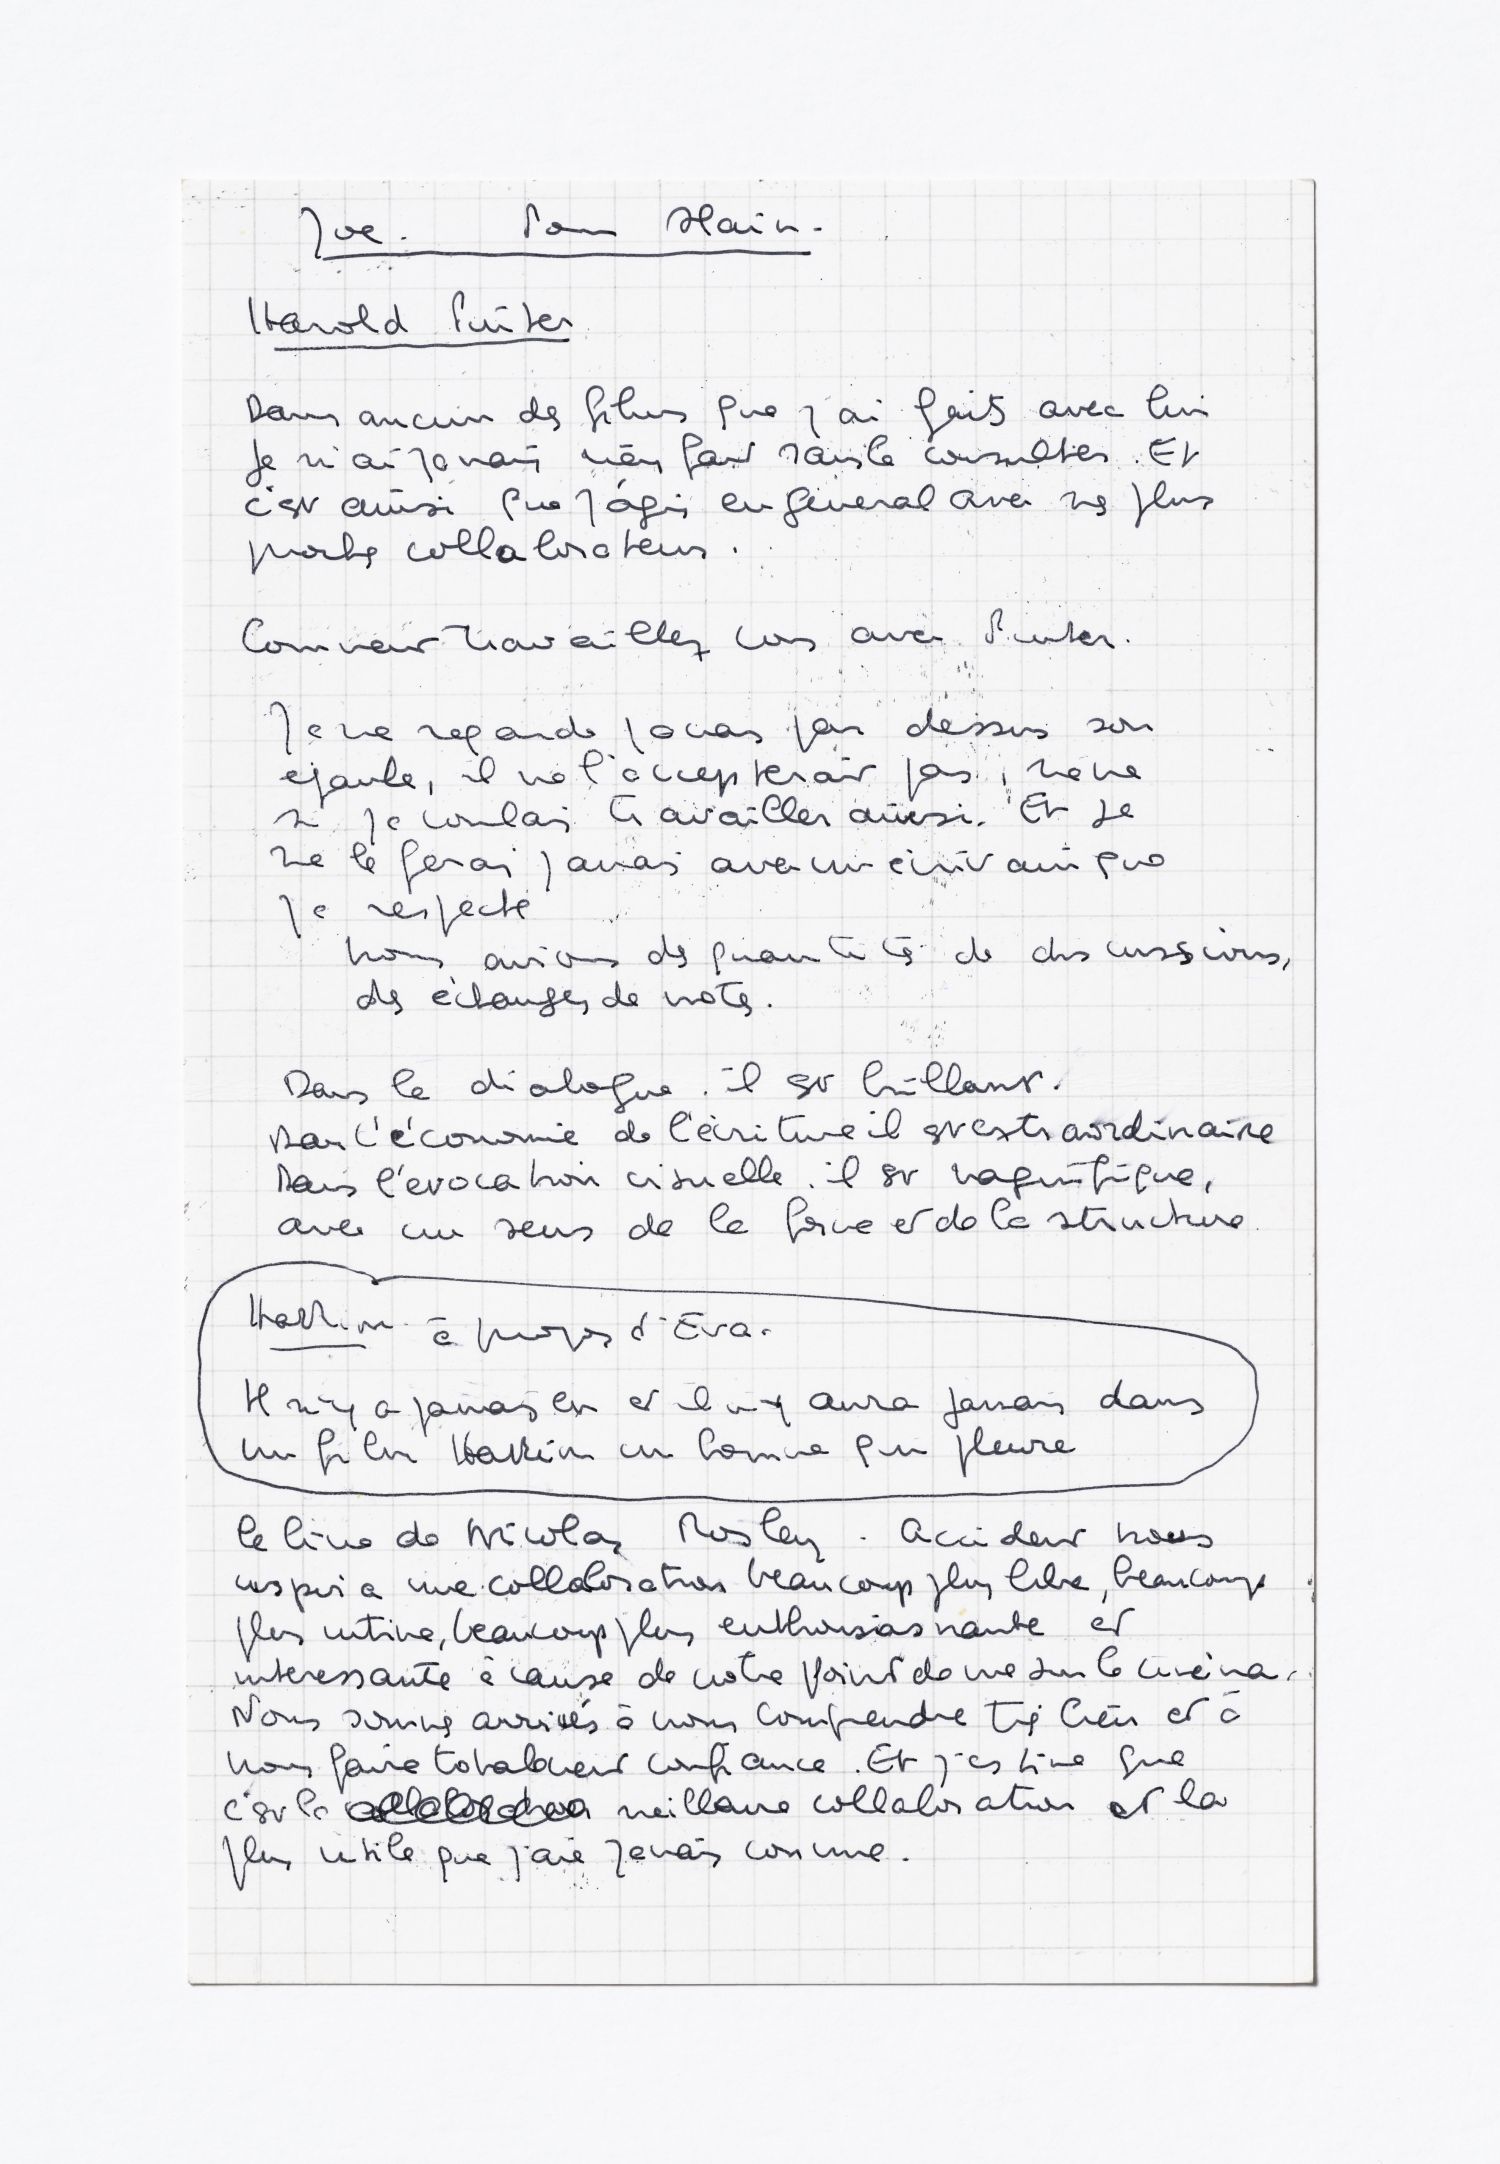 Joe. Pour Alain.
Harold Pinter
Dans aucun des films que j'ai faits avec lui
Je n'ai jamais rien fait sans le consulter. Et
c'est ainsi que j'agis en general avec mes plus
proches collaborateurs.
Comment travaillez vous avec Pinter.
Je ne regarde jamais par dessus son
epaule, il ne l'accepterait pas, même
si je voulais travailler ainsi. Et je
ne le ferai jamais avec un écrivain que
je respecte
nous avions des quantités de discussions,
des échanges de notes.
Dans le dialogue. il est brillant.
Dans l'économie de l'écriture il est extraordinaire
Dans l'evocation visuelle. il est magnifique,
avec un sens de la force et de la structure
Hakim à propos d'Eva.
Il n'y a jamais eu et il n'y aura jamais dans
un film Hakim un homme qui pleure
Le livre de Nicolas Mosley. Accident nous
inspira une collaboration beaucoup plus libre, beaucoup
plus intime, beaucoup plus enthousiasmante et
interessante à cause de notre point de vue sur le cinéma.
Nous sommes arrivés à nous comprendre très bien et à
nous faire totalement confiance. Et j'estime que
c'est la meilleure collaboration et la
plus utile que j'aie jamais connue.